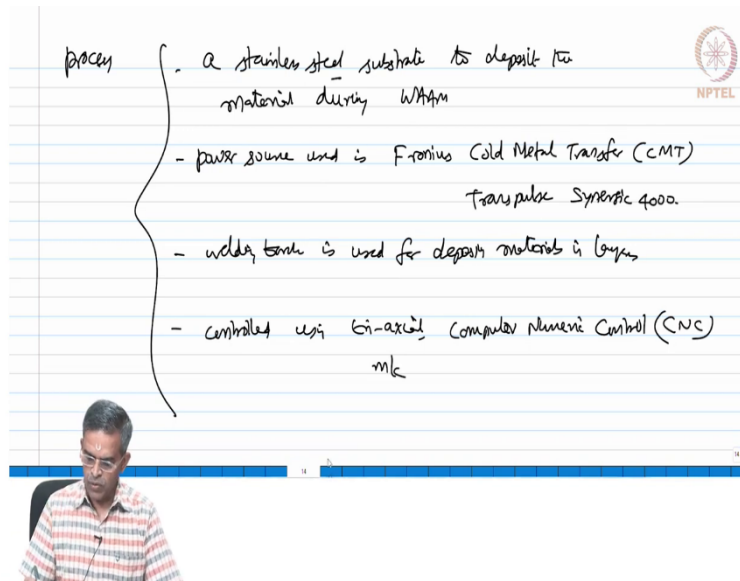 process
. a stainless steel substrate to deposit the
material during WAAM
- power source used is Fronius Cold Metal Transfer (CMT)
Transpulse Synergic 4000.
- welding torch is used for deposing materials in layers
- controlled using tri-axial Computer Numeric Control (CNC)
m/c
NPTEL
14
14